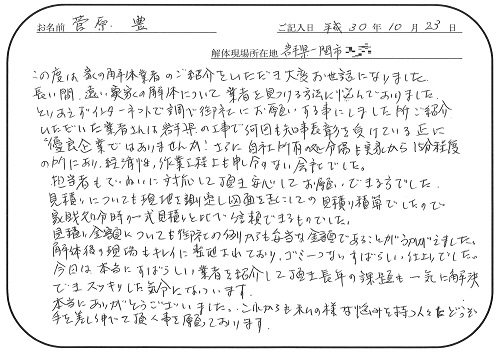 お名前 菅原 豊 ご記入日 平成30年10月23日
解体現場所在地 岩手県一関市
この度は家の解体業者のご紹介をいただき大変お世話になりました。
長い間、遠い実家の解体について業者を見つける方法に悩んでおりました。
とりあえずインターネットで調べ御社にお願いする事にしました所ご紹介
いただいた業者さんは岩手県の工事で何回も知事表彰を受けている正に
"優良企業"ではありませんか!さらに自社所有の処分場も実家から15分程度
の所にあり、経済性、作業工程上も申し分ない会社でした。
担当者もていねいに対応して頂き安心してお願いできまるでした。
見積りについても現場を測定し図面を基にしての見積り積算でしたので
家残処分時の一式見積りと比べ信頼できるものでした。
見積り金額についても御社の例からも妥当な金額であることがうかがえました。
解体後の現場もキレイに整地されており、ゴミ一つないすばらしい仕上でした。
今回は本当にすばらしい業者を紹介して頂き長年の課題も一気に解決
できスッキリした気分になっています。
本当にありがとうございました。これからも私の様な悩みを持つ人々にどうぞ
手を差し伸べて頂く事を願っております。